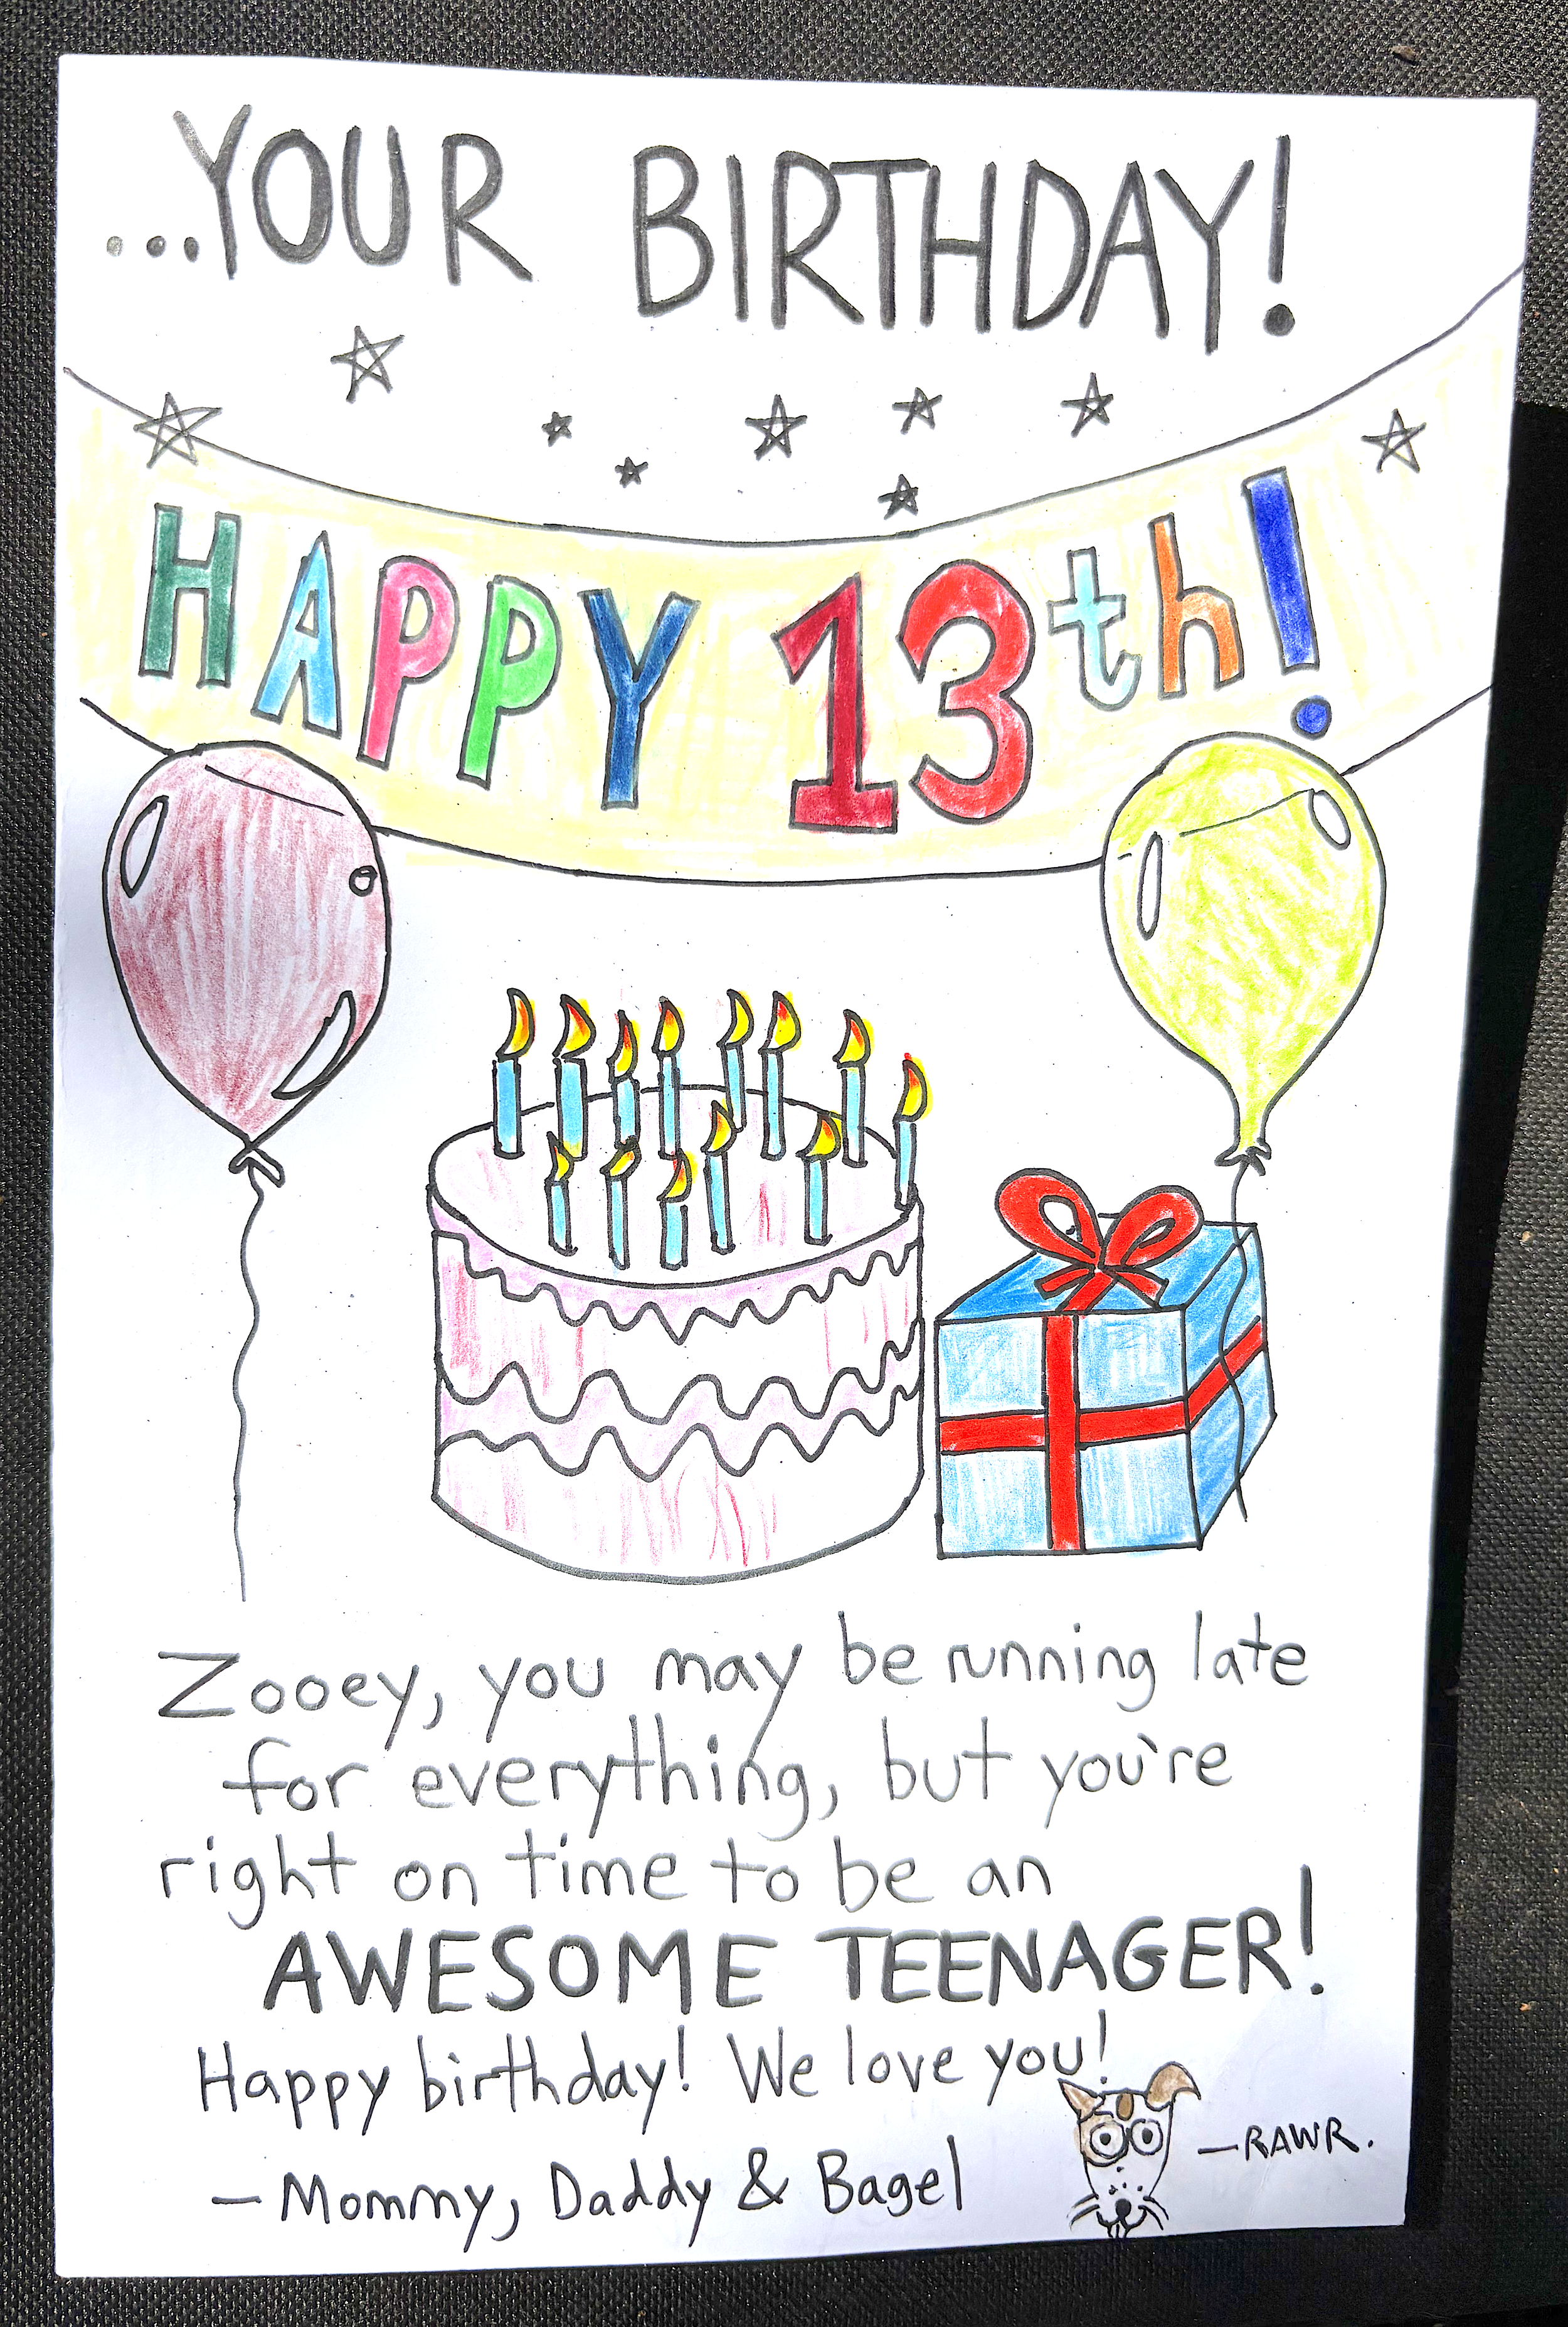 ...YOUR BIRTHDAY!
HAPPY 13th!
Zooey, you may be running late
for everything, but you're
right on time to be an
AWESOME TEENAGER!
Happy birthday! We love you!
— Mommy, Daddy & Bagel
— RAWR.